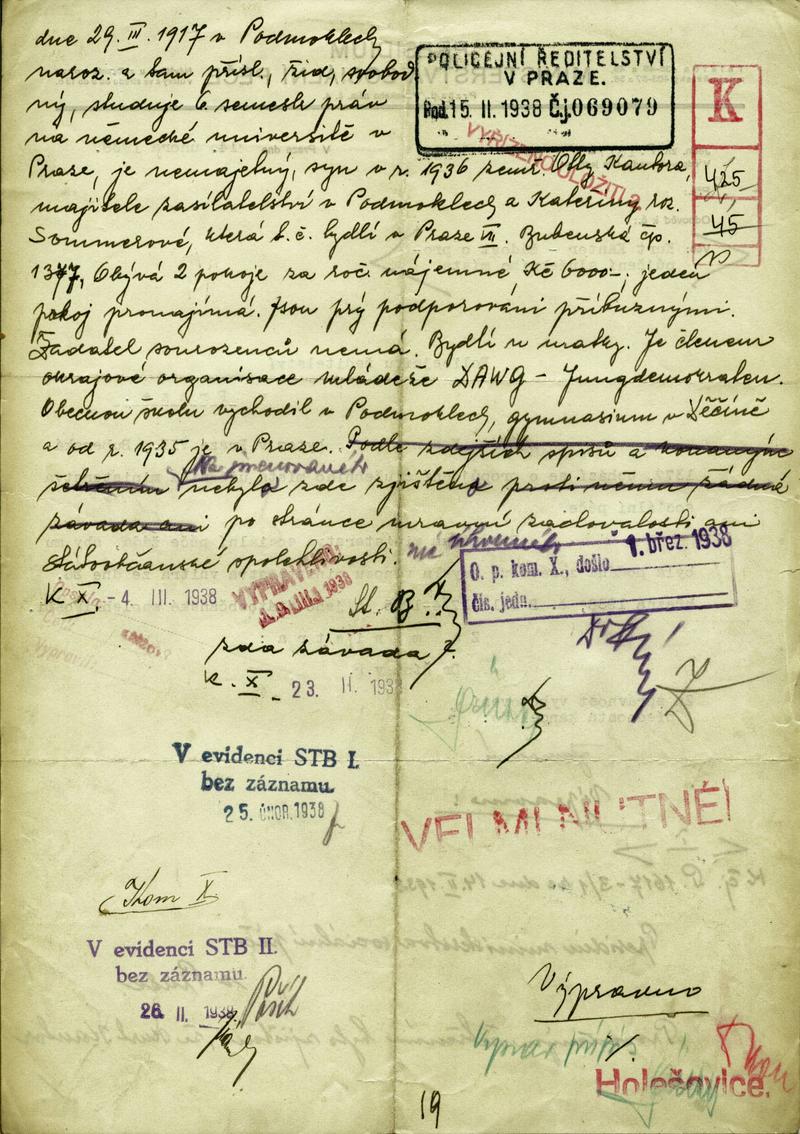 dne 29. III. 1917 v Podmoklech
naroz. a tam přísl., žid, svobod
ný, studuje 6. semestr práv
na německé universitě v
Praze, je nemajetný, syn v r. 1936 zemř. Otty Kantora,
majitele zasílatelství v Podmoklech a Kateřiny roz.
Sommerové, která t. č. bydlí v Praze VII. Bubenská čp.
1377, Obývá 2 pokoje za roč. nájemné Kč 6000-; jeden
pokoj pronajímá. Jsou prý podporováni příbuznými.
Žadatel sourozenců nemá. Bydlí u matky. Je členem
okrajové organisace mládeže DAWG - Jungdemokraten.
Obecnou školu vychodil v Podmoklech, gymnasium v Děčíně
a od r. 1935 je v Praze. Podle zdejších spisů a konaným
Na jmenovaném
šetřením nebylo zde zjištěno proti němu žádné
závada ani po stránce mravní zachovalosti ani
státoobčanské spolehlivosti. nic
POLICEJNÍ ŘEDITELSTVÍ
V PRAZE.
Pod. 15. II. 1938 Č.j. 069079
K
425
45
K X. -4. III. 1938
VYPRAVENO:
St. B. I
zda závada?
K. X. 23. II. 1938
1. břez. 1938
O. p. kom. X., došlo
čís. jedn.
V evidenci STB I.
bez záznamu.
25. ÚNOR. 1938
VELMI NUTNÉ!
Kom X
V evidenci STB II.
bez záznamu.
26. II. 1938
Výpravno
Holešovice.
19